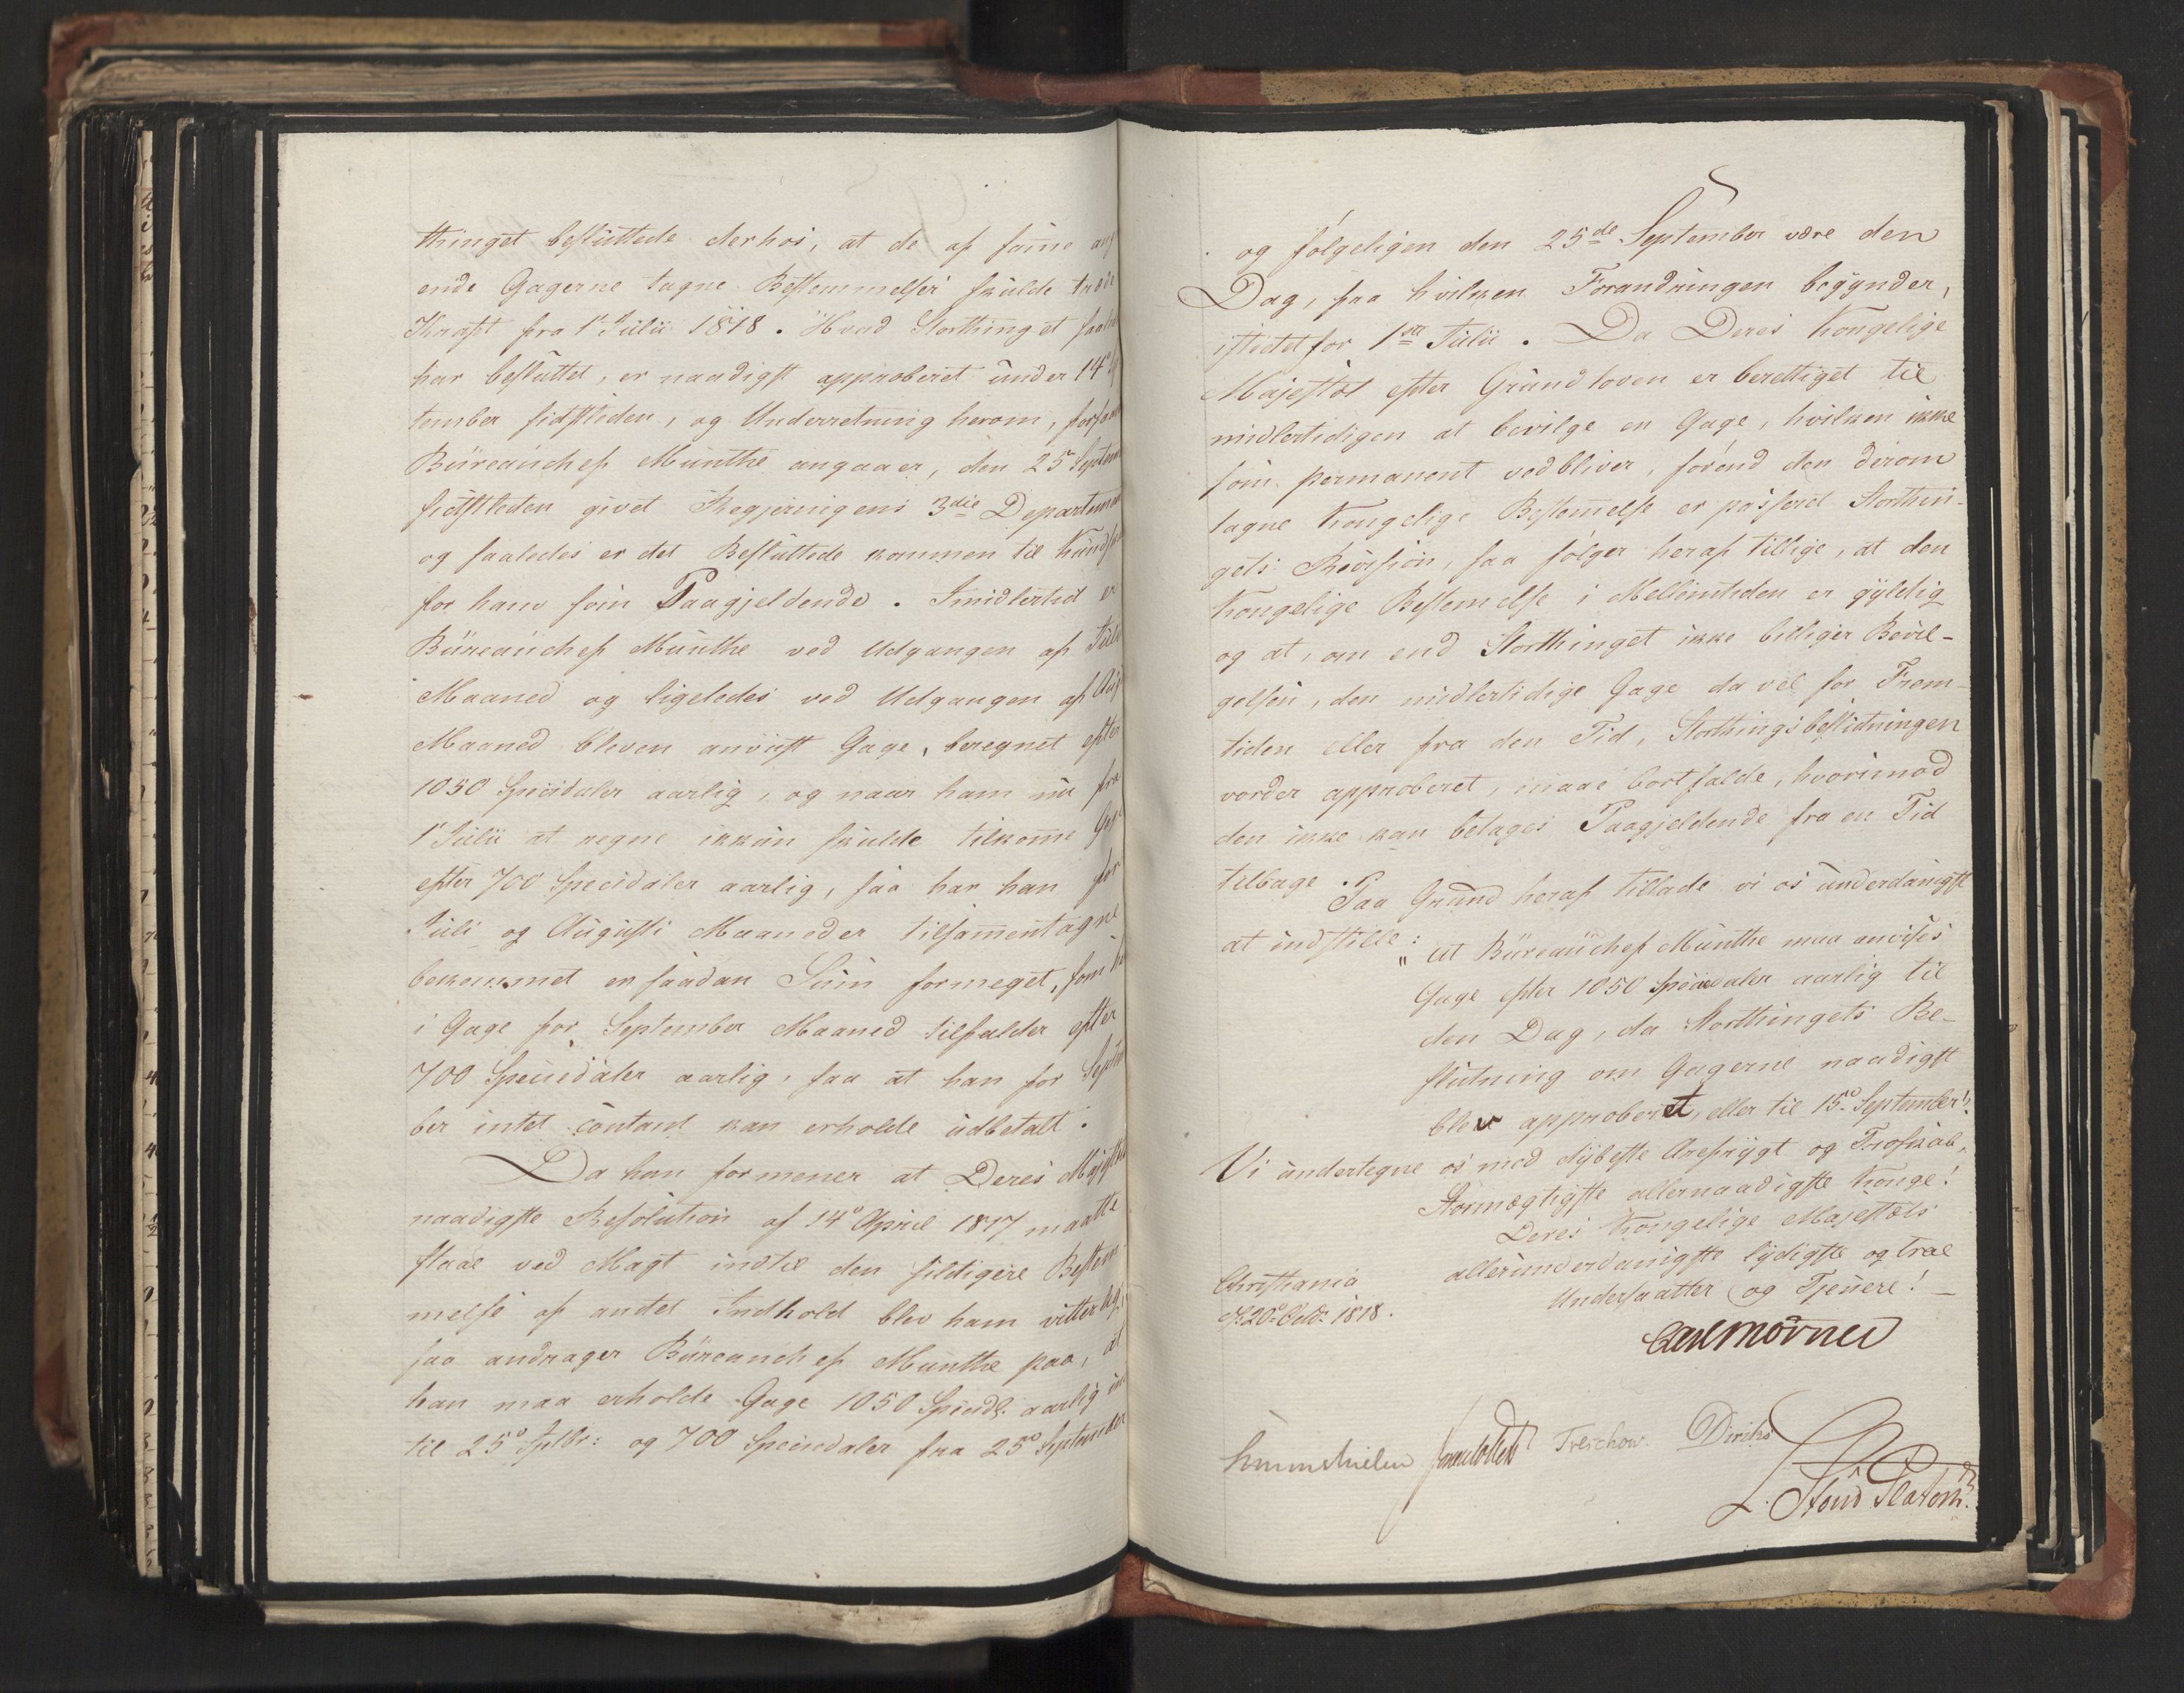 thinget besluttede derhos, at de af samme ang
ende Gagerne tagne Bestemmelser skulde træde
Kraft fra 1' Julii 1818. Hvad Storthinget saal
har besluttet, er naadigst approberet under 14
tember sidstleden, og Underretning herom, forsaa
Büreauchef Munthe angaaer, den 25 Septem
sidstleden givet Regjeringens 3die Departeme
og saaledes er det Besluttede kommen til Kundsk
for ham som Paagjeldende. Imidlertid er
Büreauchef Munthe ved Udgangen af Julii
Maaned og ligeledes ved Udgangen af Aug
Maaned bleven anviist Gage, beregnet efter
1050 Speciedaler aarlig, og naar ham nu fra
1' Julii at regne ikkun skulde tilkomme Gage
efter 700 Speciedaler aarlig, saa har han for
Juli og Augusti Maaneder tilsammentagne
bekommet en saadan Sum formeget, som
i Gage for September Maaned tilfalder efter
700 Speciedaler aarlig, saa at han for Septem
ber intet contant kan erholde udbetalt.
Da han formener at Deres Majestæts
naadigste Resolution af 14° April 1817 maatte
staae ved Magt indtil den sildigere Bestem
melse af andet Indhold blev ham vitterlig,
saa andrager Büreauchef Munthe paa, at
han maa erholde Gage 1050 Speciedlr. aarlig in
til 25° Septbr: og 700 Speciedaler fra 25° September
og følgeligen den 25de September være den
Dag, fra hvilken Forandringen begynder,
istedetfor 1ste Julii. Da Deres Kongelige
Majestæt efter Grundloven er berettiget til
midlertidigen at bevilge en Gage, hvilken ikke
som permanent vedbliver, førend den derom
tagne Kongelige Bestemmelse er passeret Storthin-
gets Revision, saa følger heraf tillige, at den
Kongelige Bestemmelse i Mellemtiden er gyldig
og at, om end Storthinget ikke billiger Bevil-
gelsen, den midlertidige Gage da vel for Frem-
tiden eller fra den Tid, Storthingsbeslutningen
vorder approberet, maae bortfalde, hvorimod
den ikke kan betages Paagjeldende fra en Tid
tilbage.
Paa Grund heraf tillade vi os underdanigst
at indstille:
"At Büreauchef Munthe maa anvises
Gage efter 1050 Speciedaler aarlig til
den Dag, da Storthingets Be-
slutning om Gagerne naadigst
blev approberet, eller til 15° September".
Vi undertegne os med dybeste Ærefrygt og Troskab,
Stormægtigste allernaadigste Konge!
Deres Kongelige Majestæts
allerunderdanigste lydigste og troe
Undersaatter og Tjenere!
Christiania
d. 20° Octbr 1818.
Carl Mörner
Sommerhielm Treschow. Diriks
L. Stoud Platou